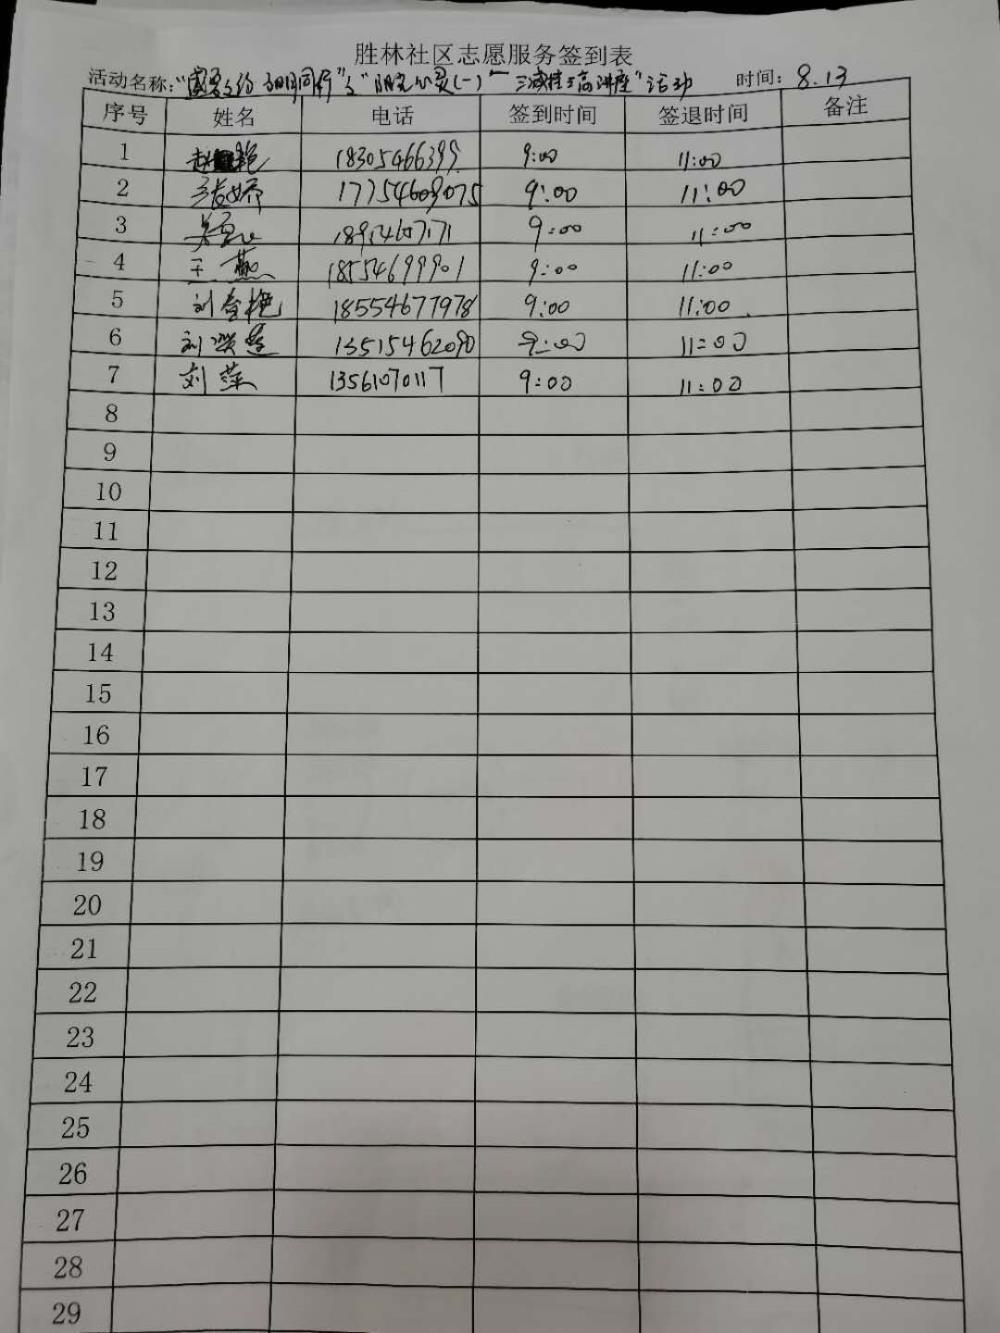 胜林社区志愿服务签到表
活动名称: 同行" (一) "三减控三高讲座"活动 时间: 8.13
序号 姓名 电话 签到时间 签退时间 备注
1 赵 艳 18305466399 9:00 11:00
2 17754609075 9:00 11:00
3 9:00 11:00
4 王燕 18554699901 9:00 11:00
5 刘 艳 18554677978 9:00 11:00
6 刘 13515462090 9:00 11:00
7 刘萍 13561070117 9:00 11:00
8
9
10
11
12
13
14
15
16
17
18
19
20
21
22
23
24
25
26
27
28
29